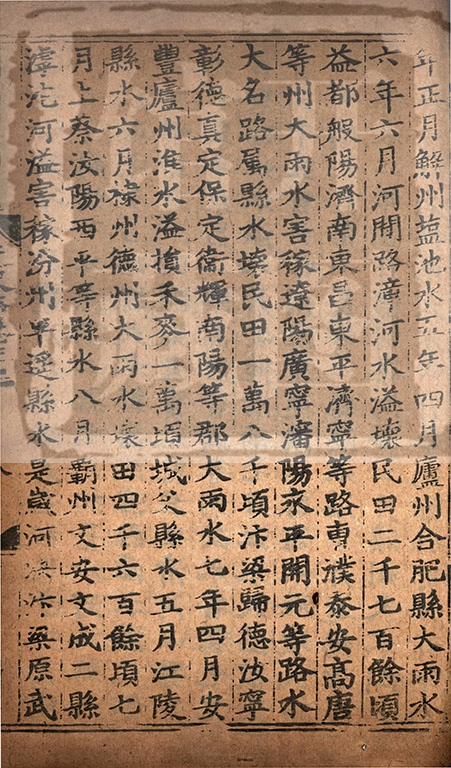 年正月解州塩池水五年四月廬州合肥縣大雨水
六年六月河間路漳河水溢壞民田二千七百餘頃
益都般陽濟南東昌東平濟寧等路曹濮泰安高唐
等州大雨水害稼遼陽廣寧瀋陽永平開元等路水
大名路属縣水壞民田一萬八千頃汴梁歸德汝寧
彰德真定保定衞輝南陽等郡大雨水七年四月安
豐廬州淮水溢損禾麥一萬頃城父縣水五月江陵
縣水六月棣州德州大雨水壞田四千六百餘頃七
月上蔡汝陽西平等縣水八月霸州文安文成二縣
滹沱河溢害稼汾州平遥縣水是歲河決汴梁原武